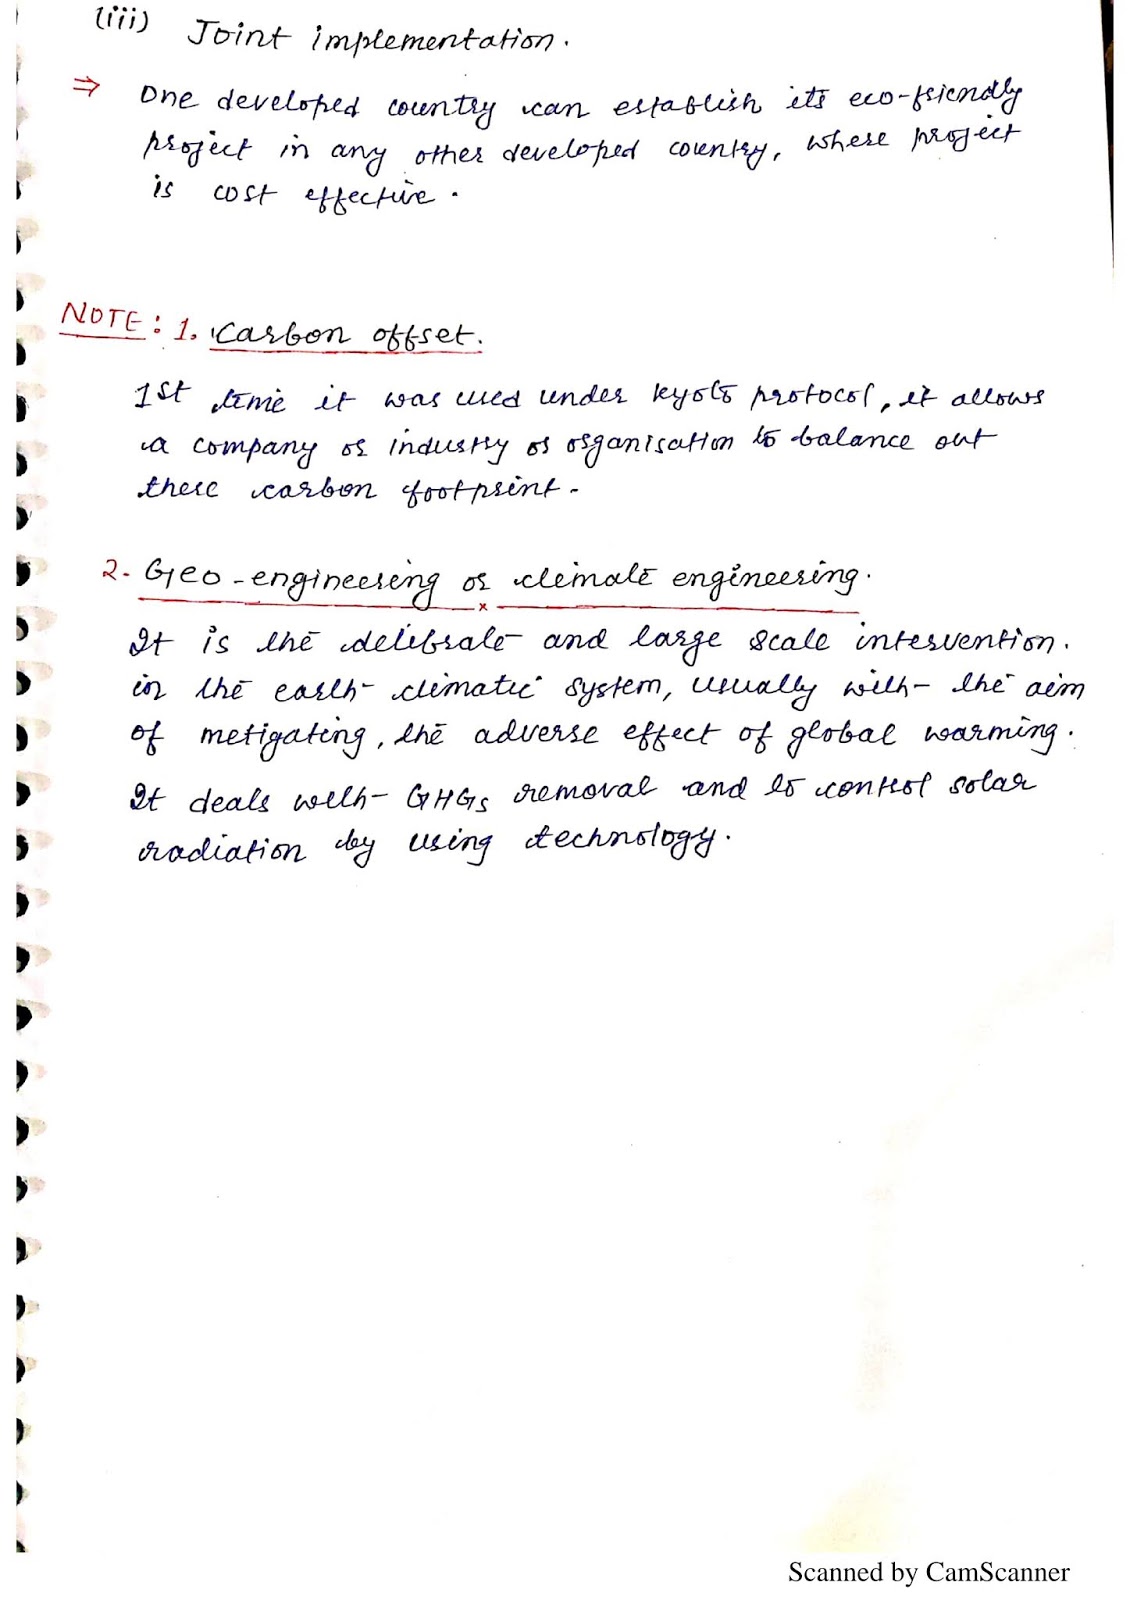 (iii) Joint implementation.
⇒ One developed country can establish its eco-friendly
project in any other developed country, where project
is cost effective.
NOTE: 1. Carbon offset.
1st time it was used under kyoto protocol, it allows
a company or industry or organisation to balance out
there carbon footprint.
2. Geo-engineering or climate engineering.
It is the delibrate and large scale intervention.
in the earth climatic system, usually with the aim
of metigating, the adverse effect of global warming.
It deals with GHGs removal and to control solar
radiation by using technology.
Scanned by CamScanner